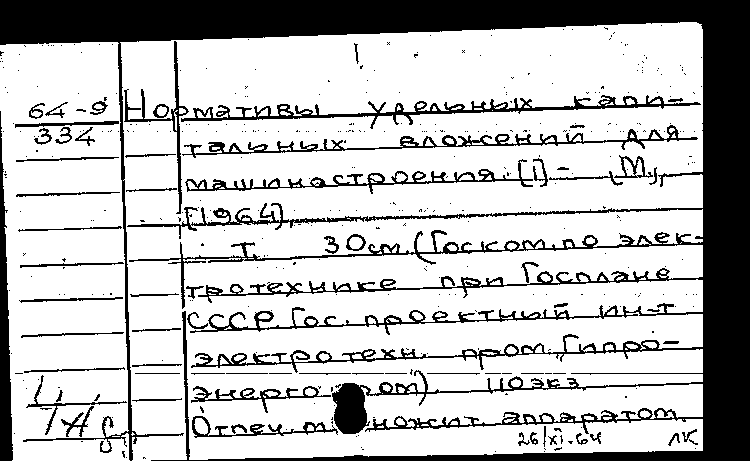 64-9
334
Нормативы удельных капи-
тальных вложений для
машиностроения. [I] - [М.,
[1964].
Т. 30см. (Госком. по элек-
тротехнике при Госплане
СССР. Гос. проектный ин-т
электротехн. пром. "Гипро-
энерго ром"). 110 экз.
Отпеч. м ножит. аппаратом.
26/XI-64 ЛК